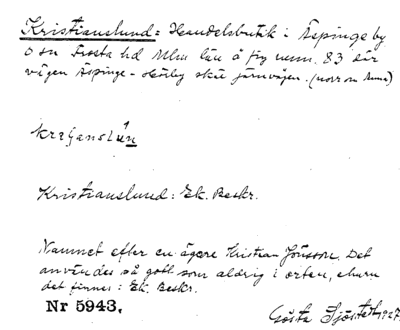 Kristianslund = Handelsbutik i Äspinge by
o sn Frosta hd Mlm län å fig num. 83 där
vägen Äspinge - Hörby skär järnvägen. (norr om
Kristianslund: Ek. Beskr.
Namnet efter en ägare Kristian Jönsson. Det
användes så gott som aldrig i orten, ehuru
det finnes i Ek. Beskr.
Nr 5943.
Gösta Sjöstedt 1927.